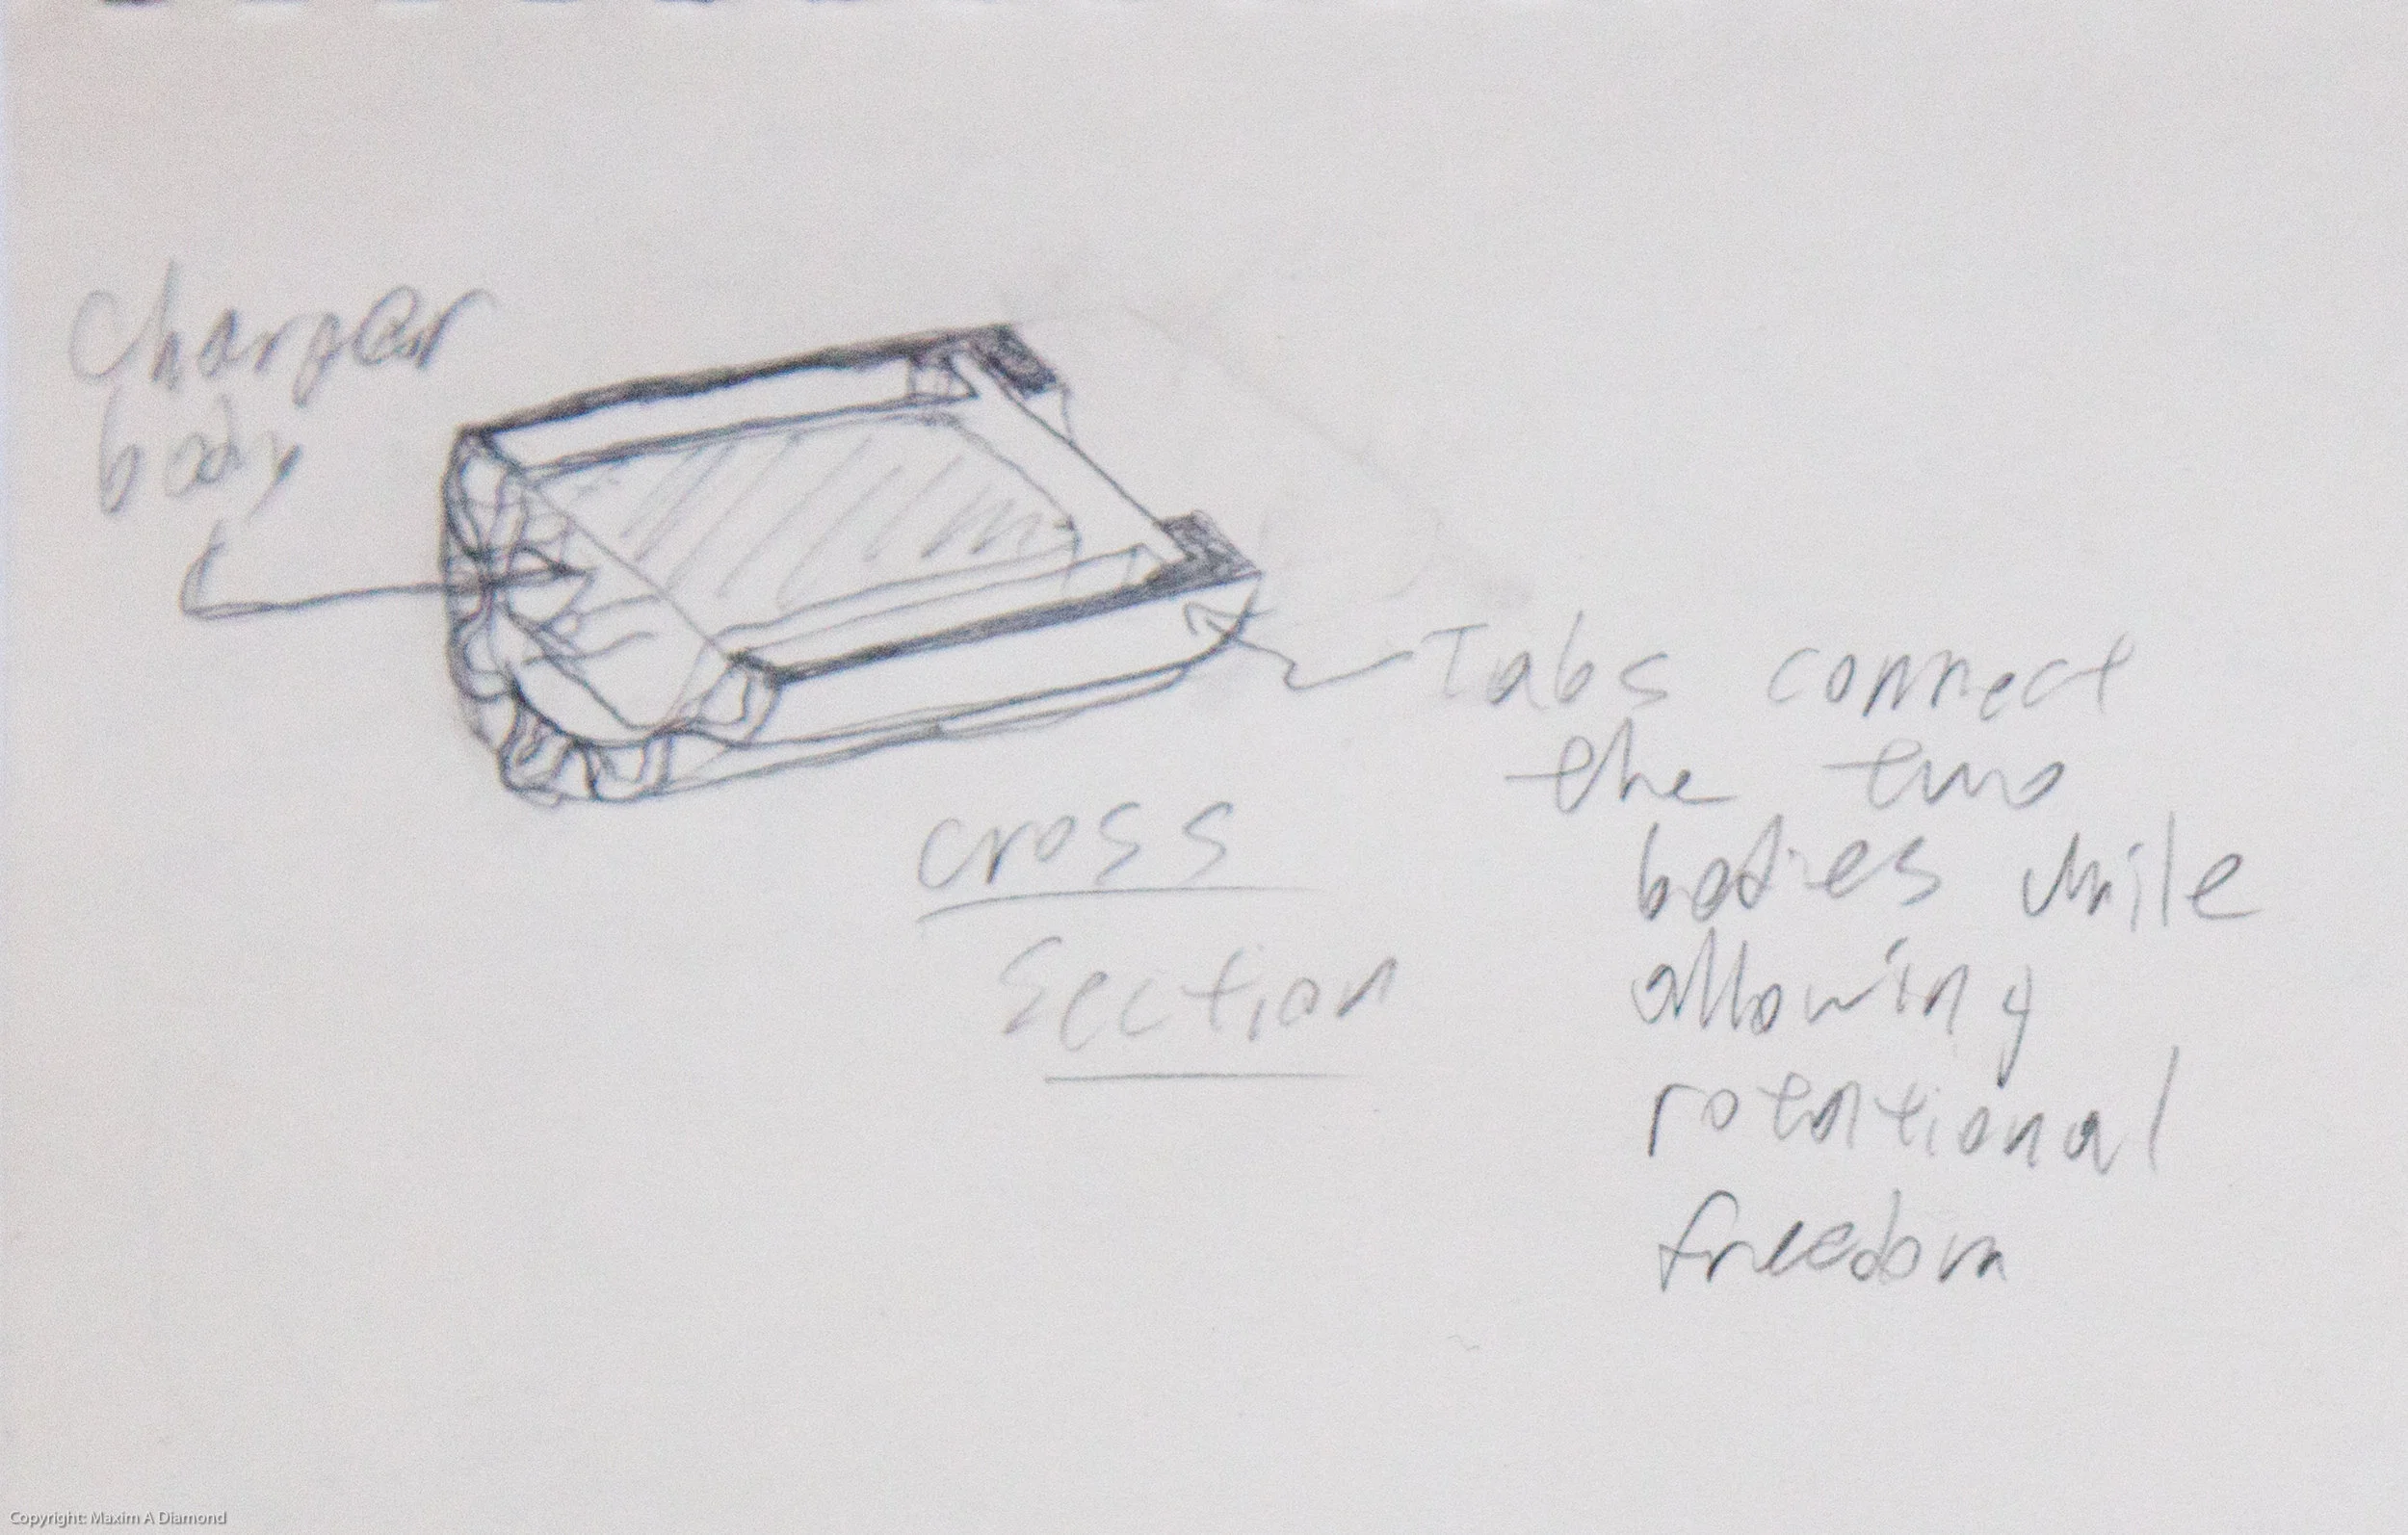 Charger
body
Tabs connect
the two
bodies while
allowing
rotational
freedom
cross
section
Copyright: Maxim A Diamond